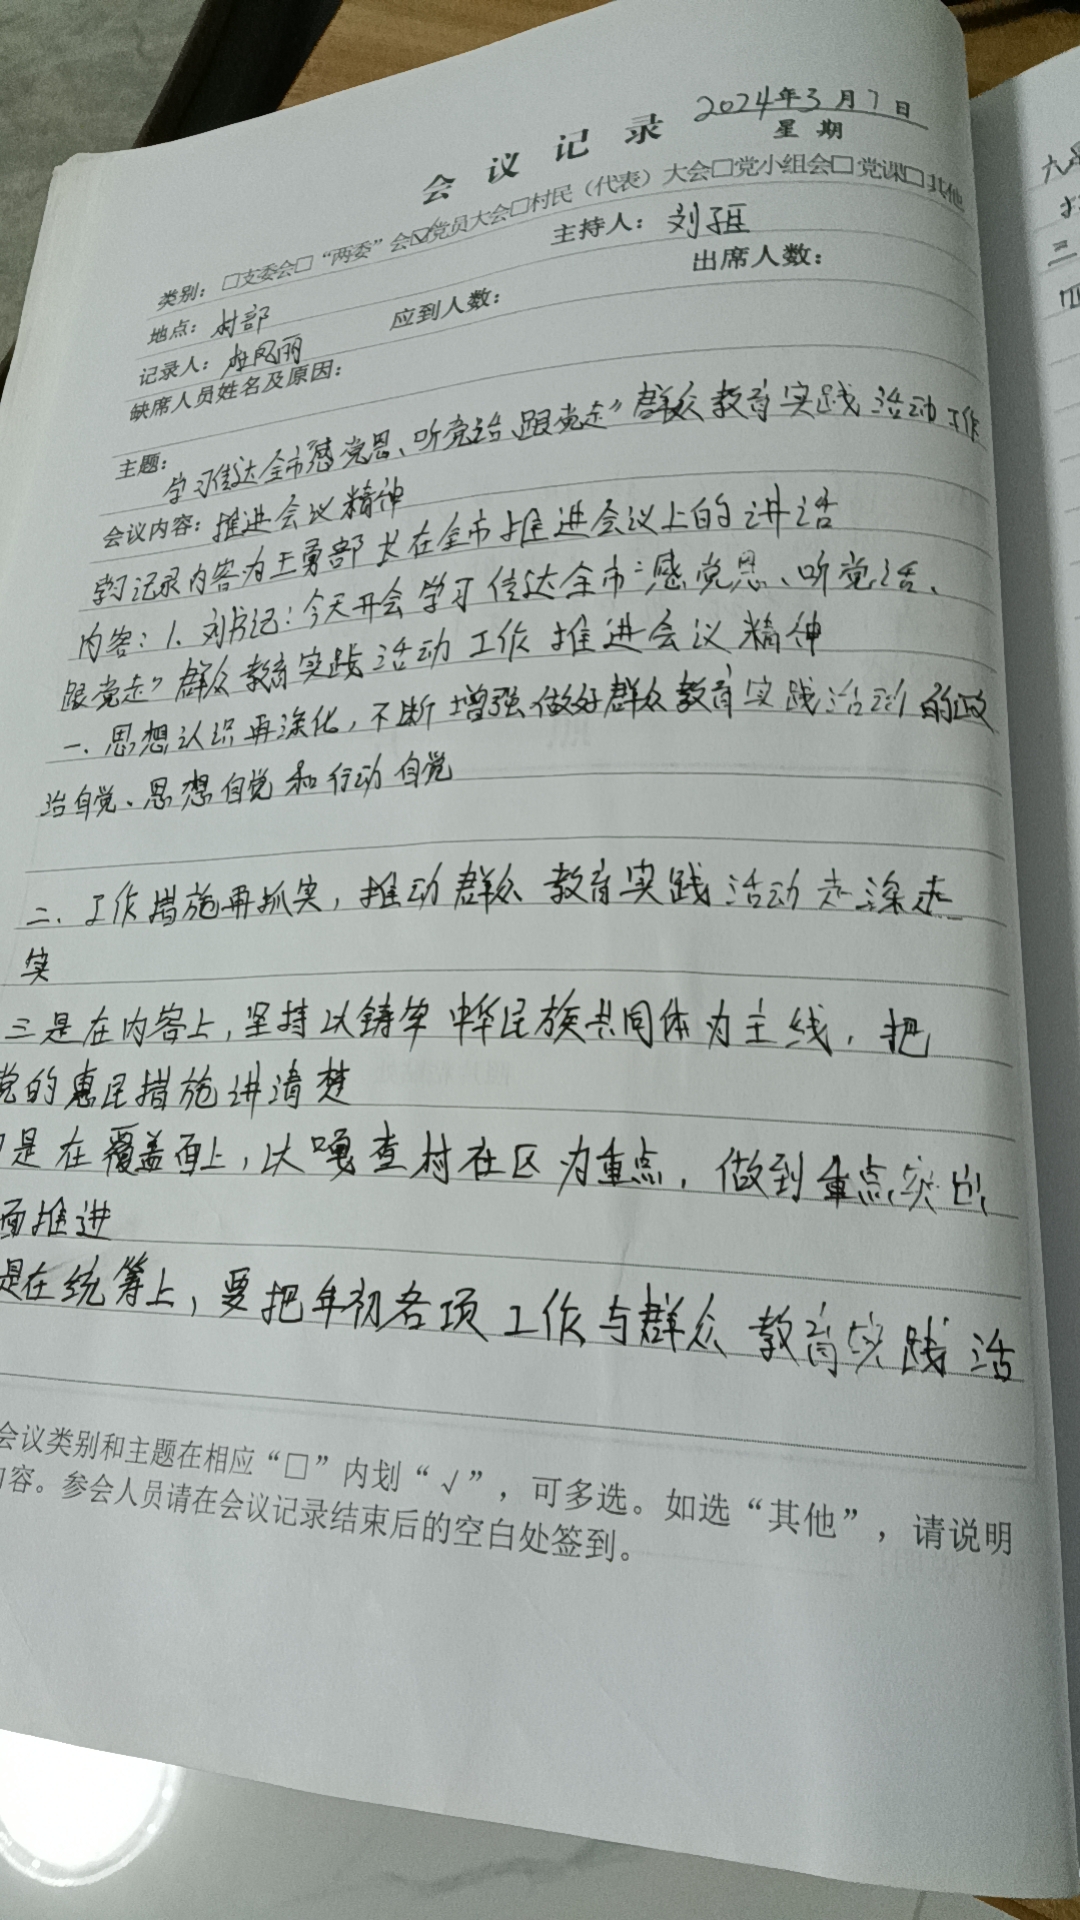 2024年3月7日
会议记录
星期
类别：□支委会□“两委”会☑党员大会□村民（代表）大会□党小组会□党课□其他
地点：村部
主持人：刘
记录人：凤丽
应到人数：
出席人数：
缺席人员姓名及原因：
主题：
学习传达全市感党恩、听党话、跟党走”群众教育实践活动工作
会议内容：推进会议精神
学习记录内容为王勇部长在全市推进会议上的讲话
内容：1、刘书记：今天开会学习传达全市“感党恩、听党话、
跟党走”群众教育实践活动工作推进会议精神
一、思想认识再深化，不断增强做好群众教育实践活动的政
治自觉、思想自觉和行动自觉
二、工作措施再抓实，推动群众教育实践活动走深走
实
三是在内容上，坚持以铸牢中华民族共同体为主线，把
党的惠民措施讲清楚
是在覆盖面上，以嘎查村社区为重点，做到重点突出
面推进
是在统筹上，要把年初各项工作与群众教育实践活
会议类别和主题在相应“□”内划“√”，可多选。如选“其他”，请说明
容。参会人员请在会议记录结束后的空白处签到。